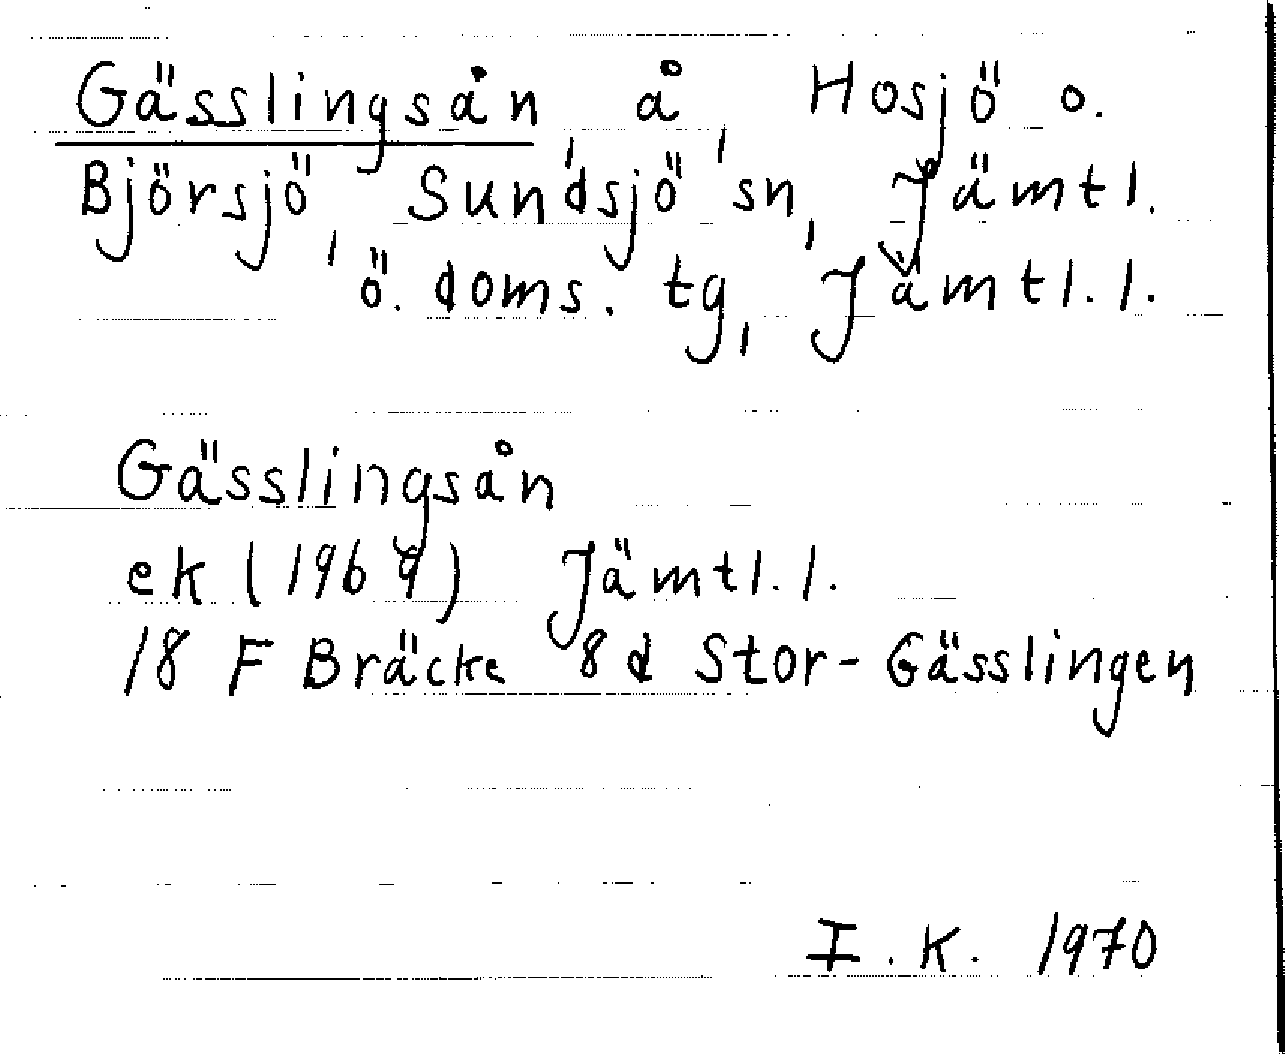 Gässlingsån, å, Hosjö o.
Björsjö, Sundsjö sn, Jämtl.
ö. doms. tg, Jämtl. l.
Gässlingsån
ek (1969) Jämtl. l.
18 F Bräcke 8 d Stor-Gässlingen
I. K. 1970